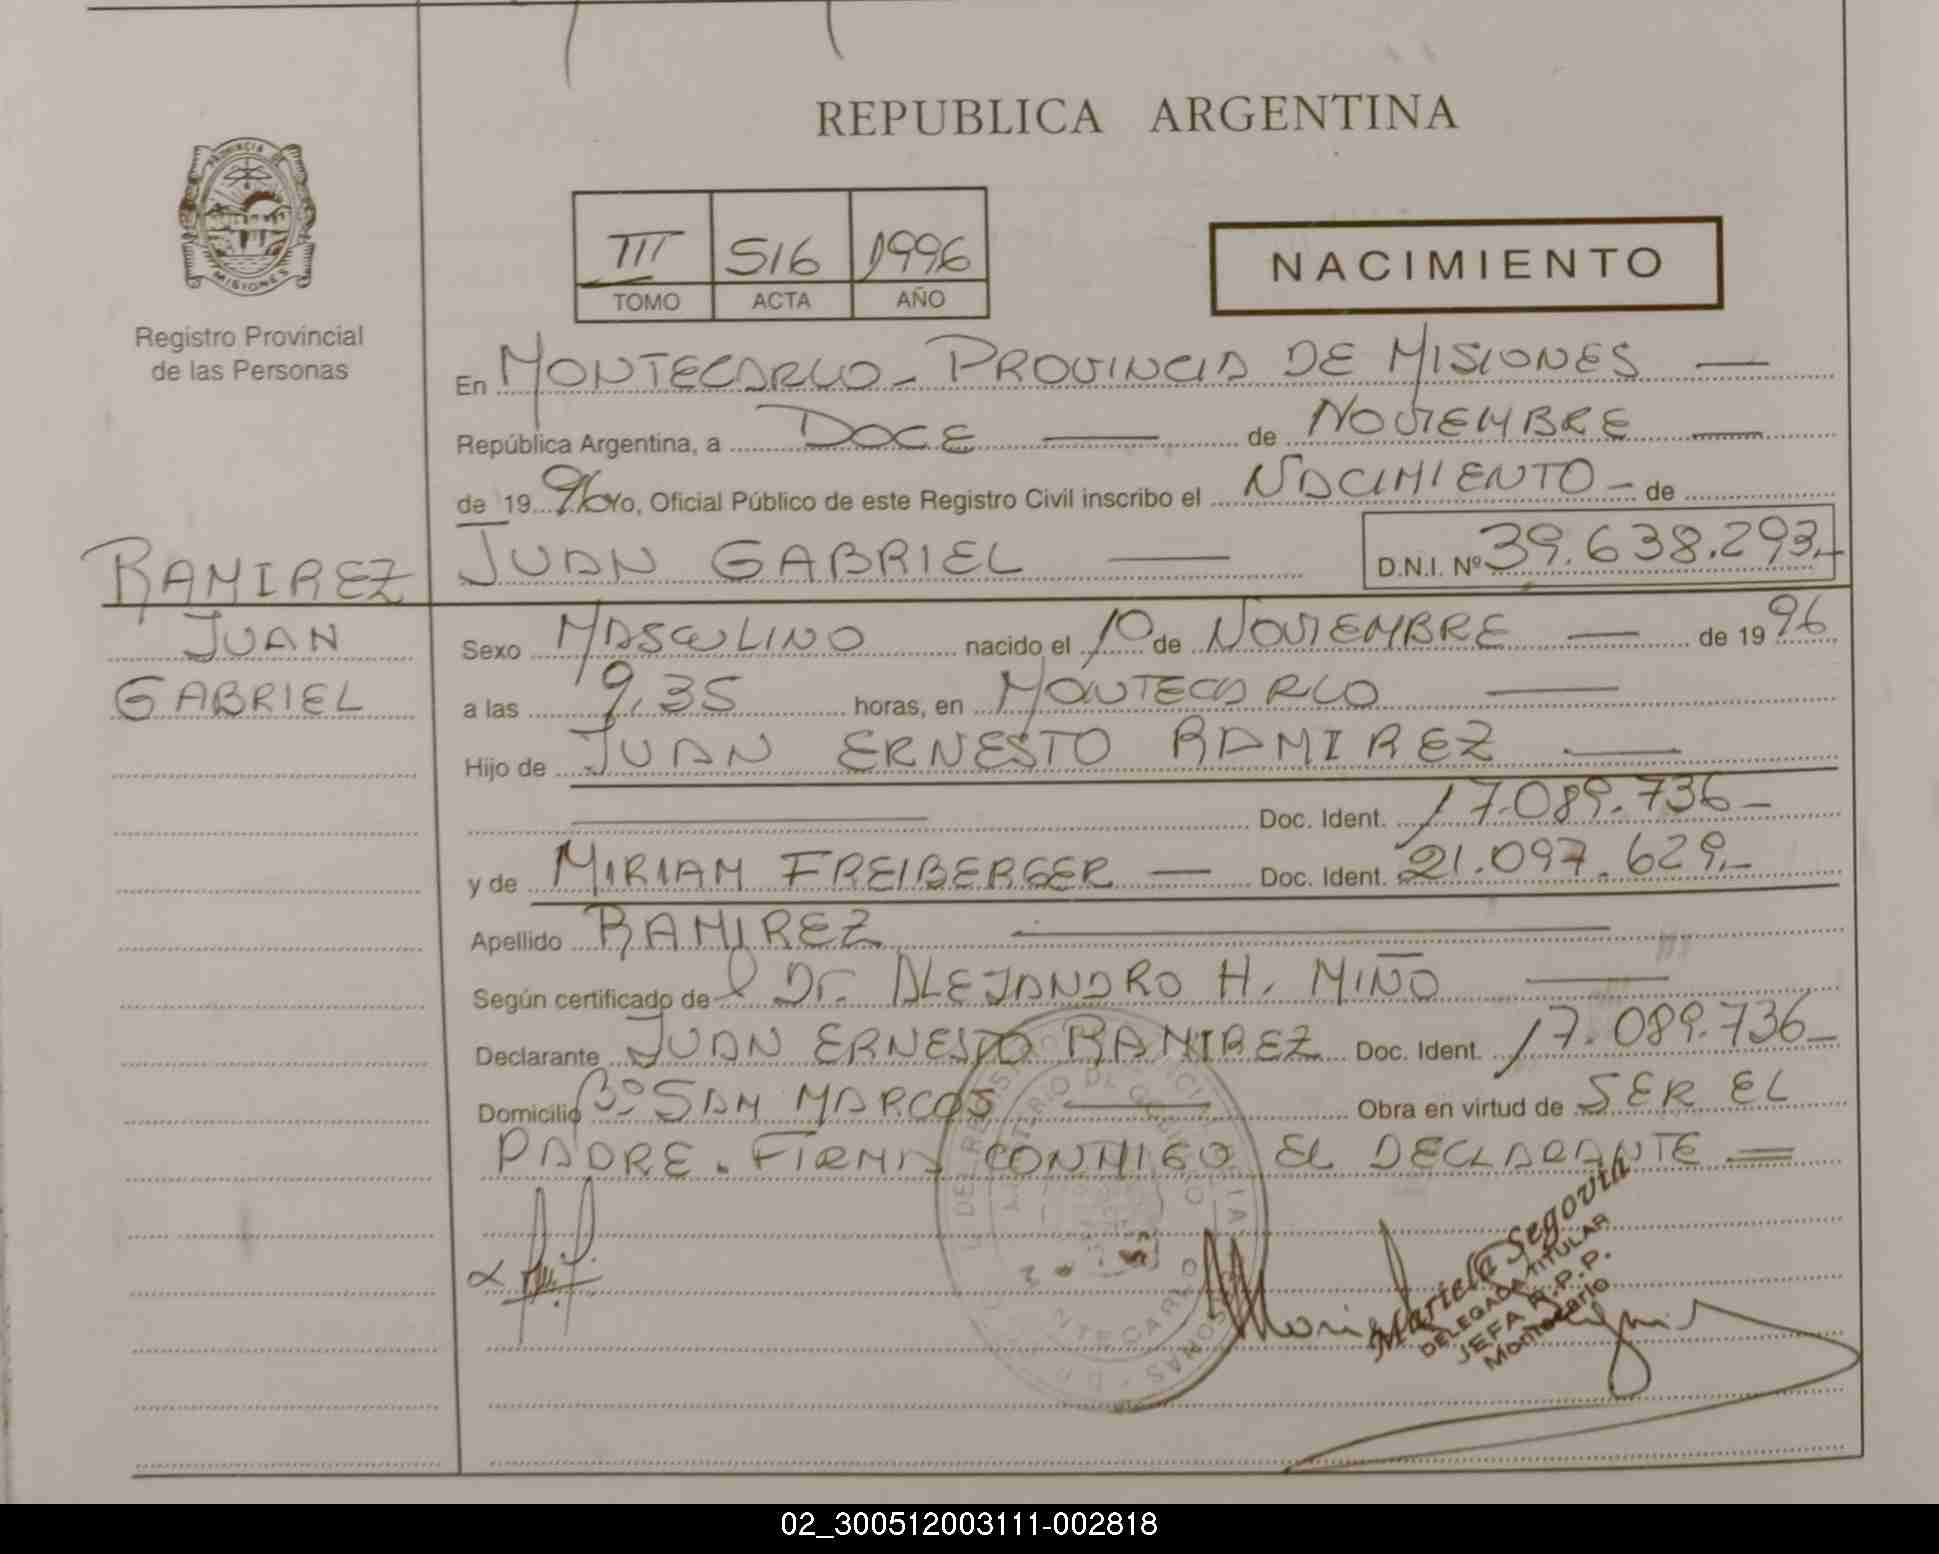 REPUBLICA ARGENTINA
PROVINCIA DE
MISIONES
Registro Provincial
de las Personas
III 516 1996
TOMO ACTA AÑO
NACIMIENTO
En MONTECARLO - PROVINCIA DE MISIONES —
República Argentina, a DOCE — de NOVIEMBRE —
de 19 96 Yo, Oficial Público de este Registro Civil inscribo el NACIMIENTO - de
RAMIREZ
JUAN
GABRIEL
JUAN GABRIEL — D.N.I. Nº 39.638.293.-
Sexo MASCULINO nacido el 10 de NOVIEMBRE — de 19 96
a las 9,35 horas, en MONTECARLO —
Hijo de JUAN ERNESTO RAMIREZ —
— Doc. Ident. 17.089.736 -
y de MIRIAM FREIBERGER — Doc. Ident. 21.097.629.-
Apellido RAMIREZ —
Según certificado de l Dr. ALEJANDRO H. MIÑO —
Declarante JUAN ERNESTO RAMIREZ Doc. Ident. 17.089.736 -
Domicilio Bº SAN MARCOS — Obra en virtud de SER EL
PADRE. FIRMA CONMIGO EL DECLARANTE =
Mariela Segovia
DELEGADA TITULAR
JEFA R.P.P.
Montecarlo
02_300512003111-002818